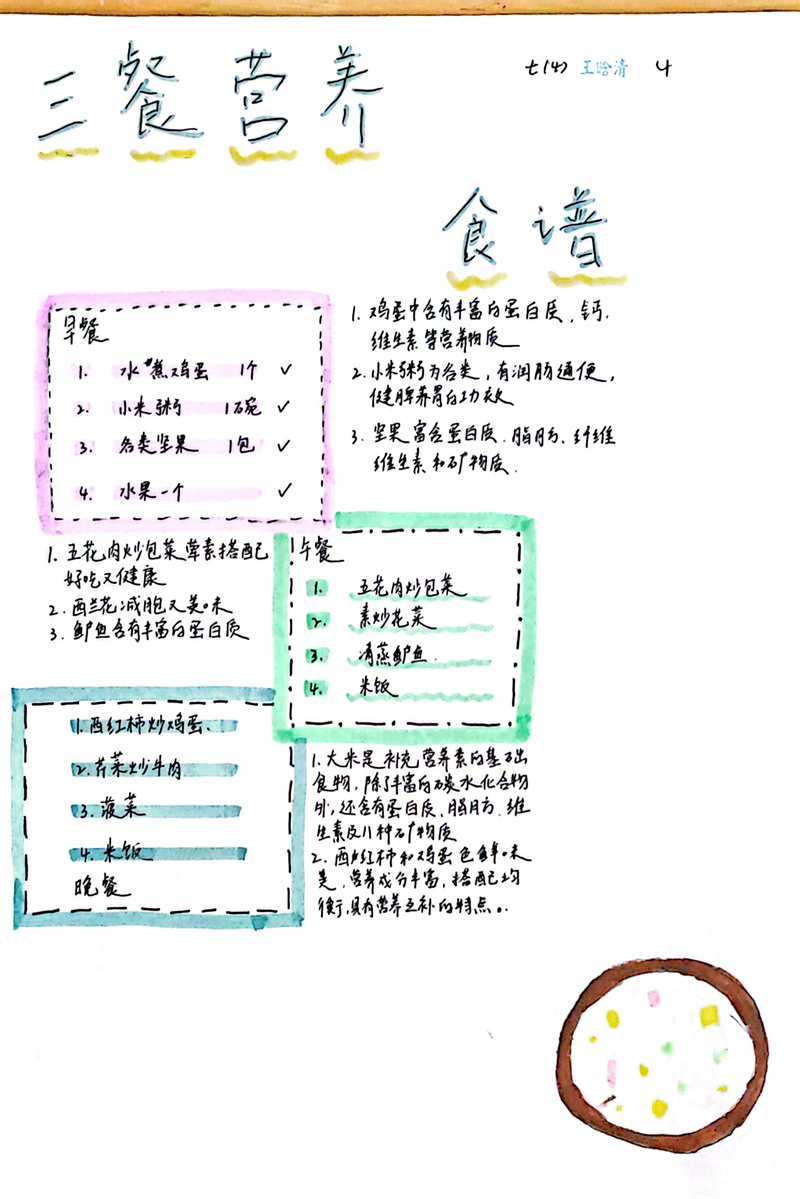 三餐营养
七(4) 王晗清 4
食谱
早餐
1. 水煮鸡蛋 1个 ✓
2. 小米粥 1碗 ✓
3. 各类坚果 1包 ✓
4. 水果一个 ✓
1. 鸡蛋中含有丰富的蛋白质、钙、
维生素等营养物质
2. 小米粥为各类,有润肠通便,
健脾养胃的功效
3. 坚果富含蛋白质、脂肪、纤维
维生素和矿物质.
1. 五花肉炒包菜荤素搭配
好吃又健康
2. 西兰花减脂又美味
3. 鲈鱼含有丰富的蛋白质
午餐
1. 五花肉炒包菜
2. 素炒花菜
3. 清蒸鲈鱼.
4. 米饭
1. 西红柿炒鸡蛋、
2. 芹菜炒牛肉
3. 菠菜
4. 米饭
晚餐
1. 大米是补充营养素的基础
食物,除了丰富的碳水化合物
外,还含有蛋白质、脂肪、维
生素及11种矿物质
2. 西红柿和鸡蛋色鲜味
美,营养成分丰富,搭配均
衡,具有营养互补的特点。